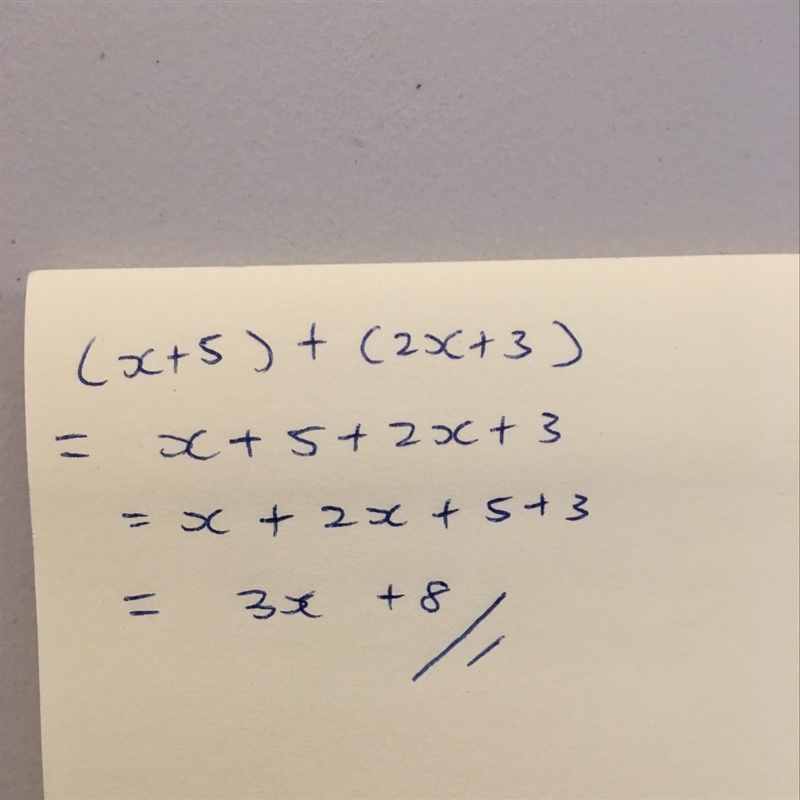 (x+5) + (2x+3)
= x + 5 + 2x + 3
= x + 2x + 5 + 3
= 3x + 8 //